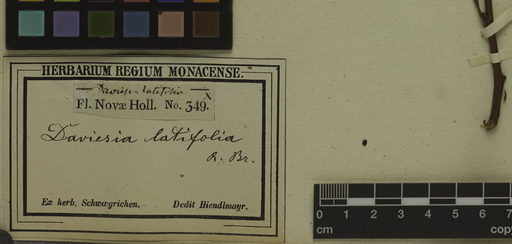 HERBARIUM REGIUM MONACENSE.
Daviesia latifolia
Fl. Novæ Holl. No. 349.
Daviesia latifolia
R. Br.
Ex herb. Schwœgrichen. Dedit Hiendlmayr.
0 1 2 3 4 5 6 7
cm copy